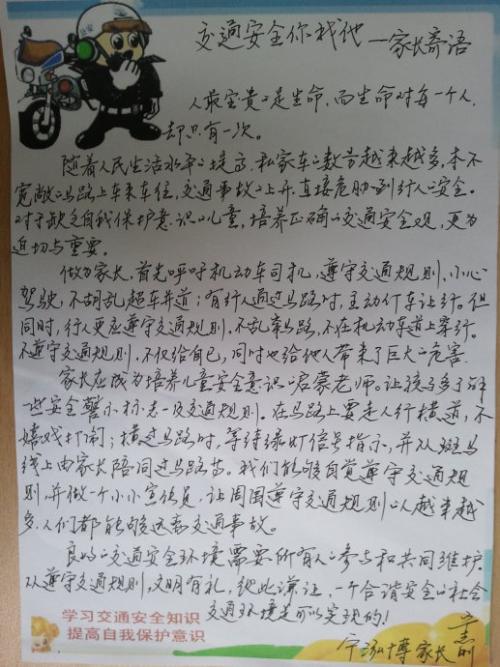 交通安全你我他 —家长寄语
人最宝贵的是生命,而生命对每一个人,
却只有一次。
随着人民生活水平的提高,私家车的数量越来越多,本不
宽敞的马路上车来车往,交通事故的上升直接危胁到行人的安全。
对于缺乏自我保护意识的儿童,培养正确的交通安全观,更为
迫切与重要。
做为家长,首先呼吁机动车司机,遵守交通规则,小心
驾驶,不胡乱超车并道;有行人通过马路时,主动停车让行。但
同时,行人更应遵守交通规则,不乱穿马路,不在机动车道上穿行。
不遵守交通规则,不仅给自己,同时也给他人带来了巨大的危害。
家长应成为培养儿童安全意识的启蒙老师。让孩子多了解
些安全警示标志以及交通规则。在马路上要走人行横道,不
嬉戏打闹;横过马路时,等待绿灯信号指示,并从斑马
线上由家长陪同过马路等。我们能够自觉遵守交通规
则,并做一个小小宣传员,让周围遵守交通规则的人越来越
多,人们都能够远离交通事故。
良好的交通安全环境需要所有人的参与和共同维护。
从遵守交通规则,文明有礼,彼此谦让,一个合谐安全的社会
交通环境是可以实现的!
学习交通安全知识
提高自我保护意识
宁泓博家长